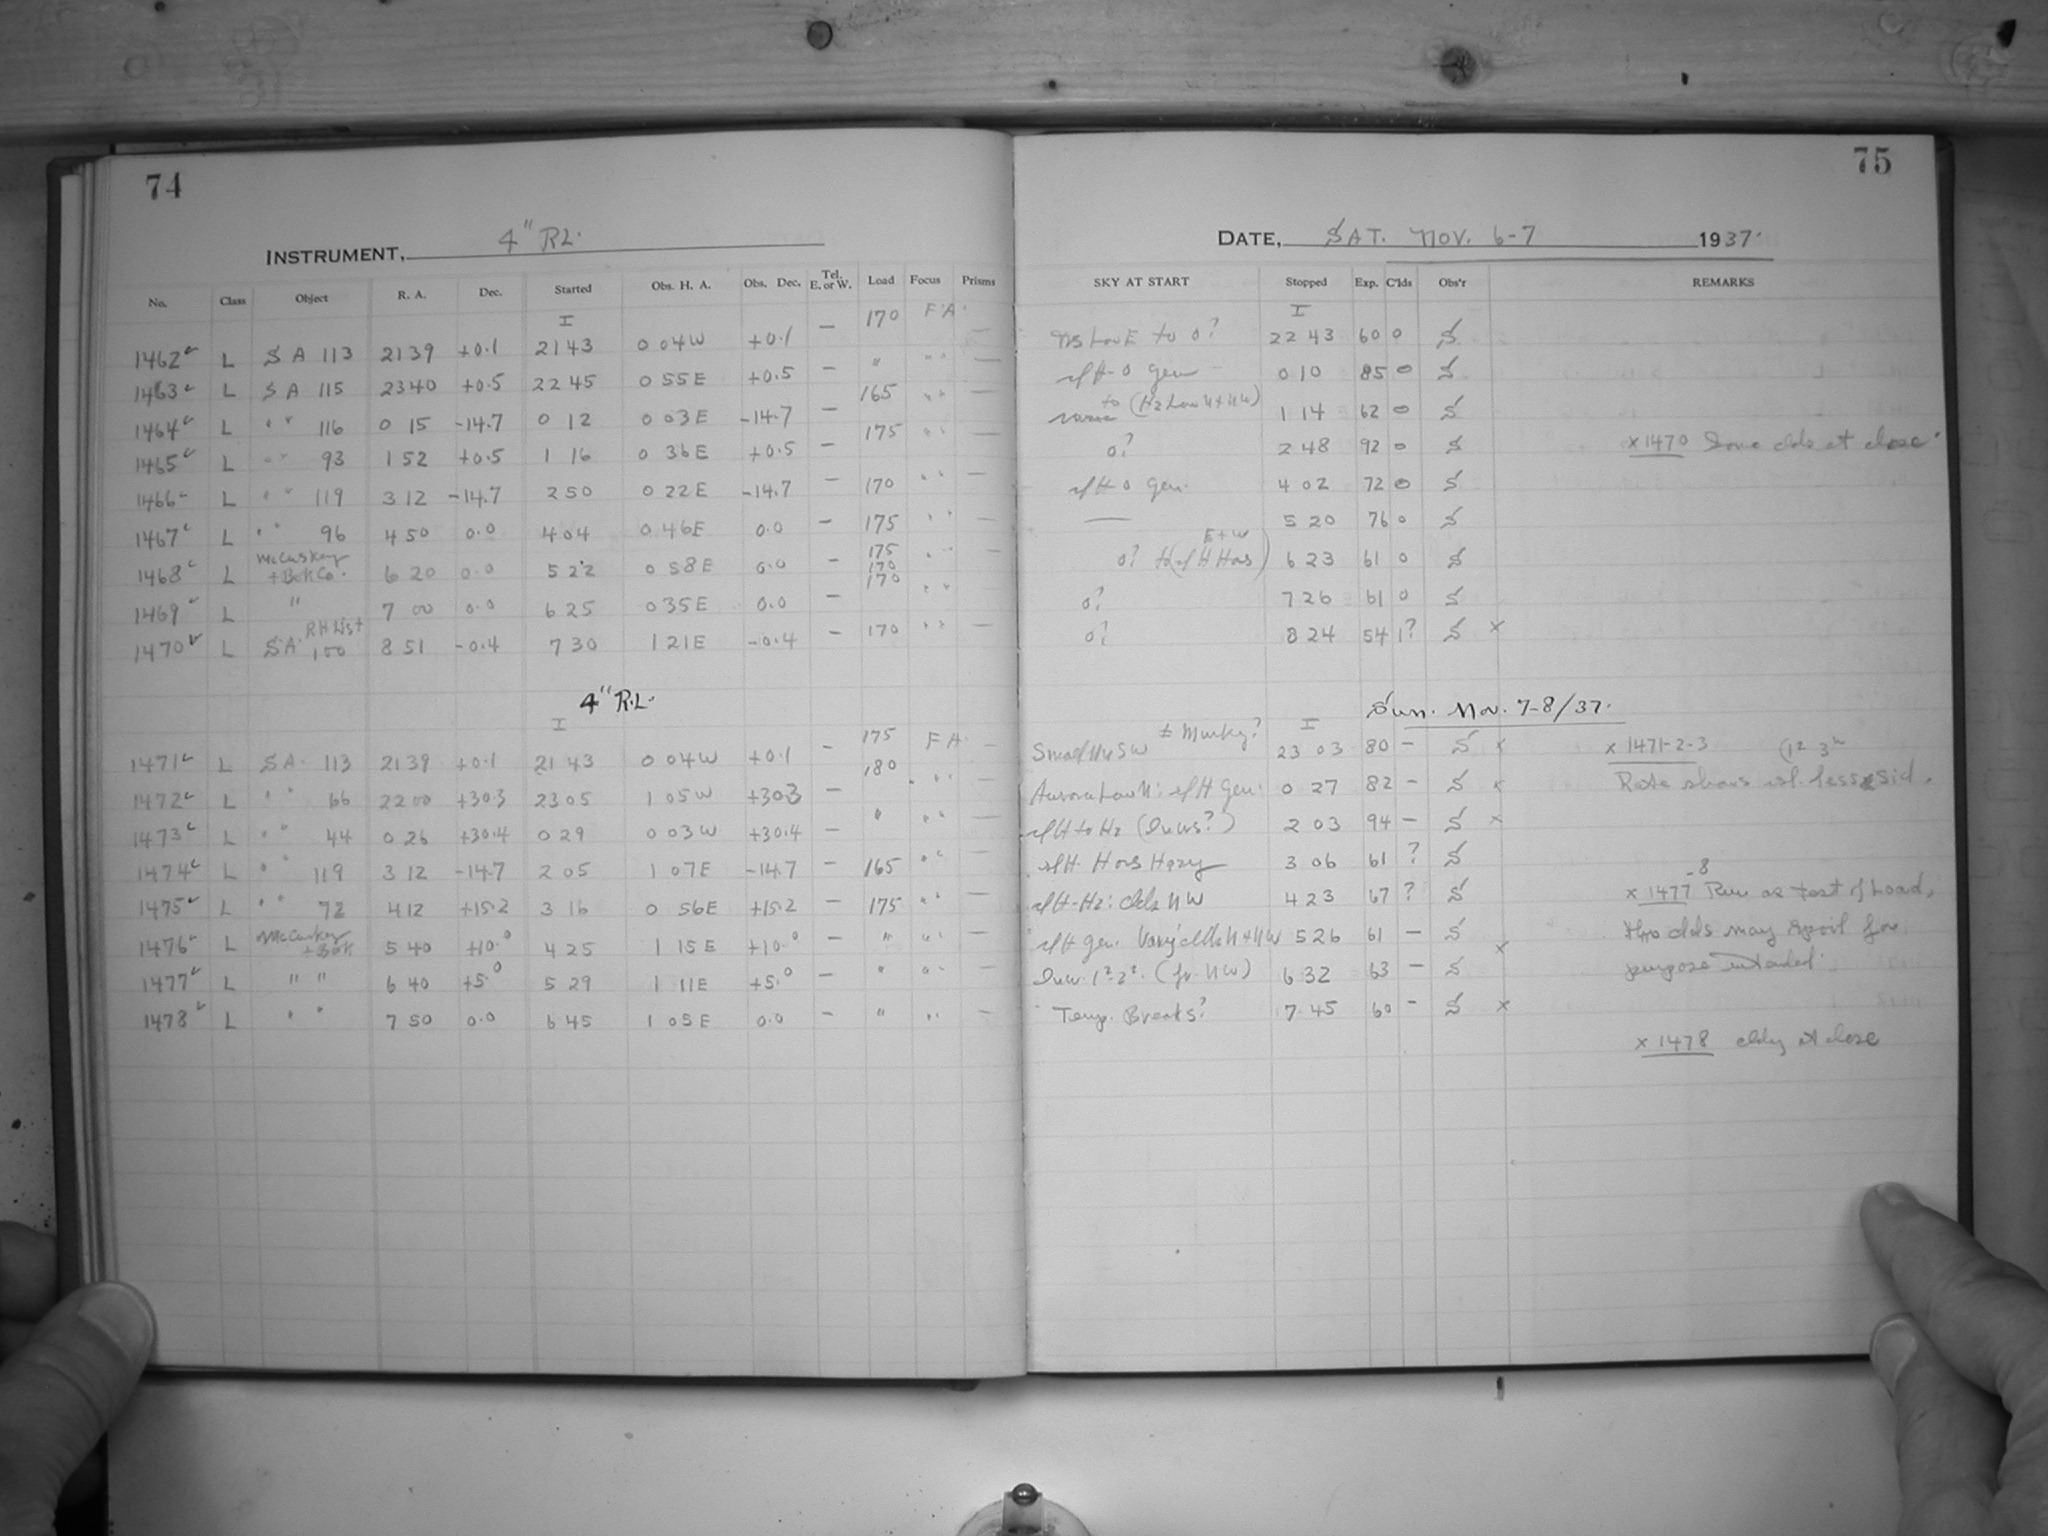 74
INSTRUMENT, 4" RL.
No. Class Object R. A. Dec. Started Obs. H. A. Obs. Dec. Tel. E. or W. Load Focus Prisms
I
1462 L SA 113 2139 +0.1 2143 0 04W +0.1 — 170 FA. —
1463 L SA 115 2340 +0.5 2245 0 55E +0.5 — " " " —
1464 L " " 116 0 15 -14.7 0 12 0 03E -14.7 — 165 " " —
1465 L " " 93 1 52 +0.5 1 16 0 36E +0.5 — 175 " " —
1466 L " " 119 3 12 -14.7 2 50 0 22E -14.7 — 170 " " —
1467 L " " 96 4 50 0.0 4 04 0 46E 0.0 — 175 " " —
1468 L McCuskey + Bok Co. 6 20 0.0 5 22 0 58E 0.0 — 175 170 " " —
1469 L " 7 00 0.0 6 25 0 35E 0.0 — 170 " "
1470 L SA RH List 100 8 51 -0.4 7 30 1 21E -0.4 — 170 " " —
4" R.L.
I
1471 L SA 113 2139 +0.1 2143 0 04W +0.1 — 175 FA. —
1472 L " " 66 2200 +30.3 2305 1 05W +30.3 — 180 " " —
1473 L " " 44 0 26 +30.4 0 29 0 03W +30.4 — " " " —
1474 L " 119 3 12 -14.7 2 05 1 07E -14.7 — 165 " " —
1475 L " " 72 4 12 +15.2 3 16 0 56E +15.2 — 175 " " —
1476 L McCuskey + Bok 5 40 +10.0 4 25 1 15E +10.0 — " " " —
1477 L " " 6 40 +5.0 5 29 1 11E +5.0 — " " " —
1478 L " " 7 50 0.0 6 45 1 05E 0.0 — " " " —
75
DATE, SAT. NOV. 6-7 1937.
SKY AT START Stopped Exp. C'lds Obs'r REMARKS
I
Low E to 0? 22 43 60 0 S
0 gen 0 10 85 0 S
to (Hz Low N + NW) 1 14 62 0 S
0? 2 48 92 0 S x 1470 Some clds at close.
0 gen. 4 02 72 0 S
— 5 20 76 0 S
0? E + W 6 23 61 0 S
0? 7 26 61 0 S
0? 8 24 54 1? S x
Sun. Nov. 7-8/37.
± Murky? I
23 03 80 — S x x 1471-2-3
Aurora Low N: gen. 0 27 82 — S x Rate shows less sid.
to Hz 2 03 94 — S x
Hors Hazy 3 06 61 ? S
Hz: clds NW 4 23 67 ? S x 1477-8 Run as test of Load,
gen. N + NW 5 26 61 — S tho clds may spoil for
(fr. NW) 6 32 63 — S x purpose intended.
Temp. Breaks? 7 45 60 — S x
x 1478 cldy at close